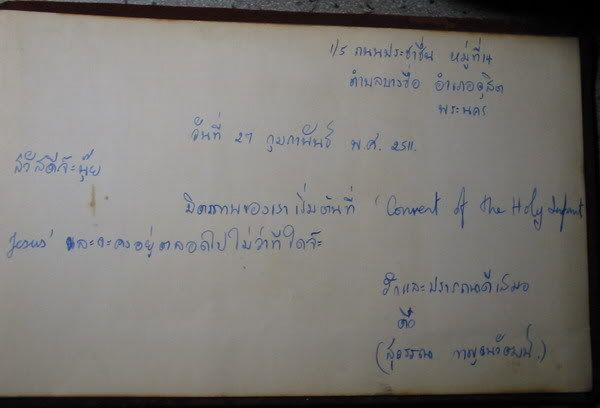 1/5 ถนนประชาชื่น หมู่ที่ 14
ตำบลบางซื่อ อำเภอดุสิต
พระนคร
วันที่ 27 กุมภาพันธ์ พ.ศ. 2511.
สวัสดีจ้ะนุ้ย
มิตรภาพของเราเริ่มต้นที่ 'Convent of the Holy Infant
Jesus' และจะคงอยู่ตลอดไปไม่ว่าที่ใดจ้ะ
รักและปรารถนาดีเสมอ
(สุวรรณา